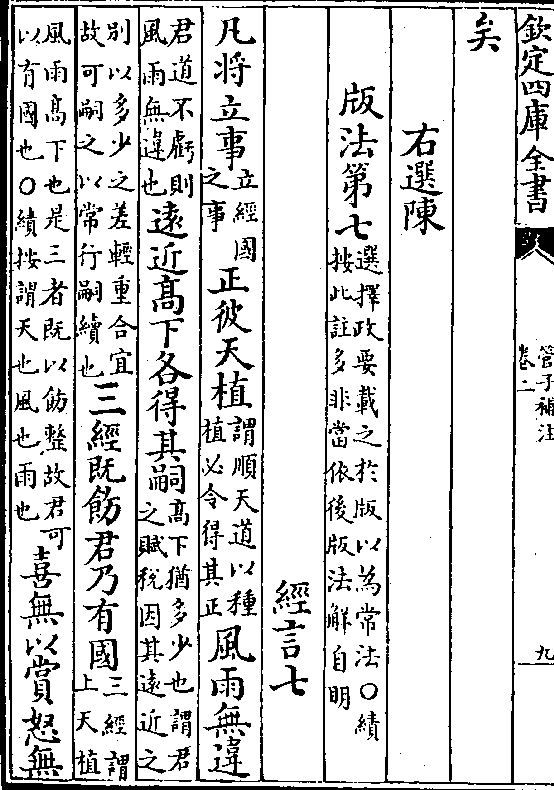 欽定四庫全書
管子補注
卷二
九
矣
右選陳
版法第七選擇政要載之於版以為常法○績按此註多非當依後版法解自明
經言七
凡将立事立經國之事正彼天植謂順天道以種植必令得其正風雨無違
君道不虧則風雨無違也遠近髙下各得其嗣髙下猶多少也謂君之賦稅因其遠近之
别以多少之差輕重合宜故可嗣之以常行嗣續也三經既飭君乃有國三經謂上天植
風雨髙下也是三者既以飭整故君可以有國也○績按謂天也風也雨也喜無以賞怒無